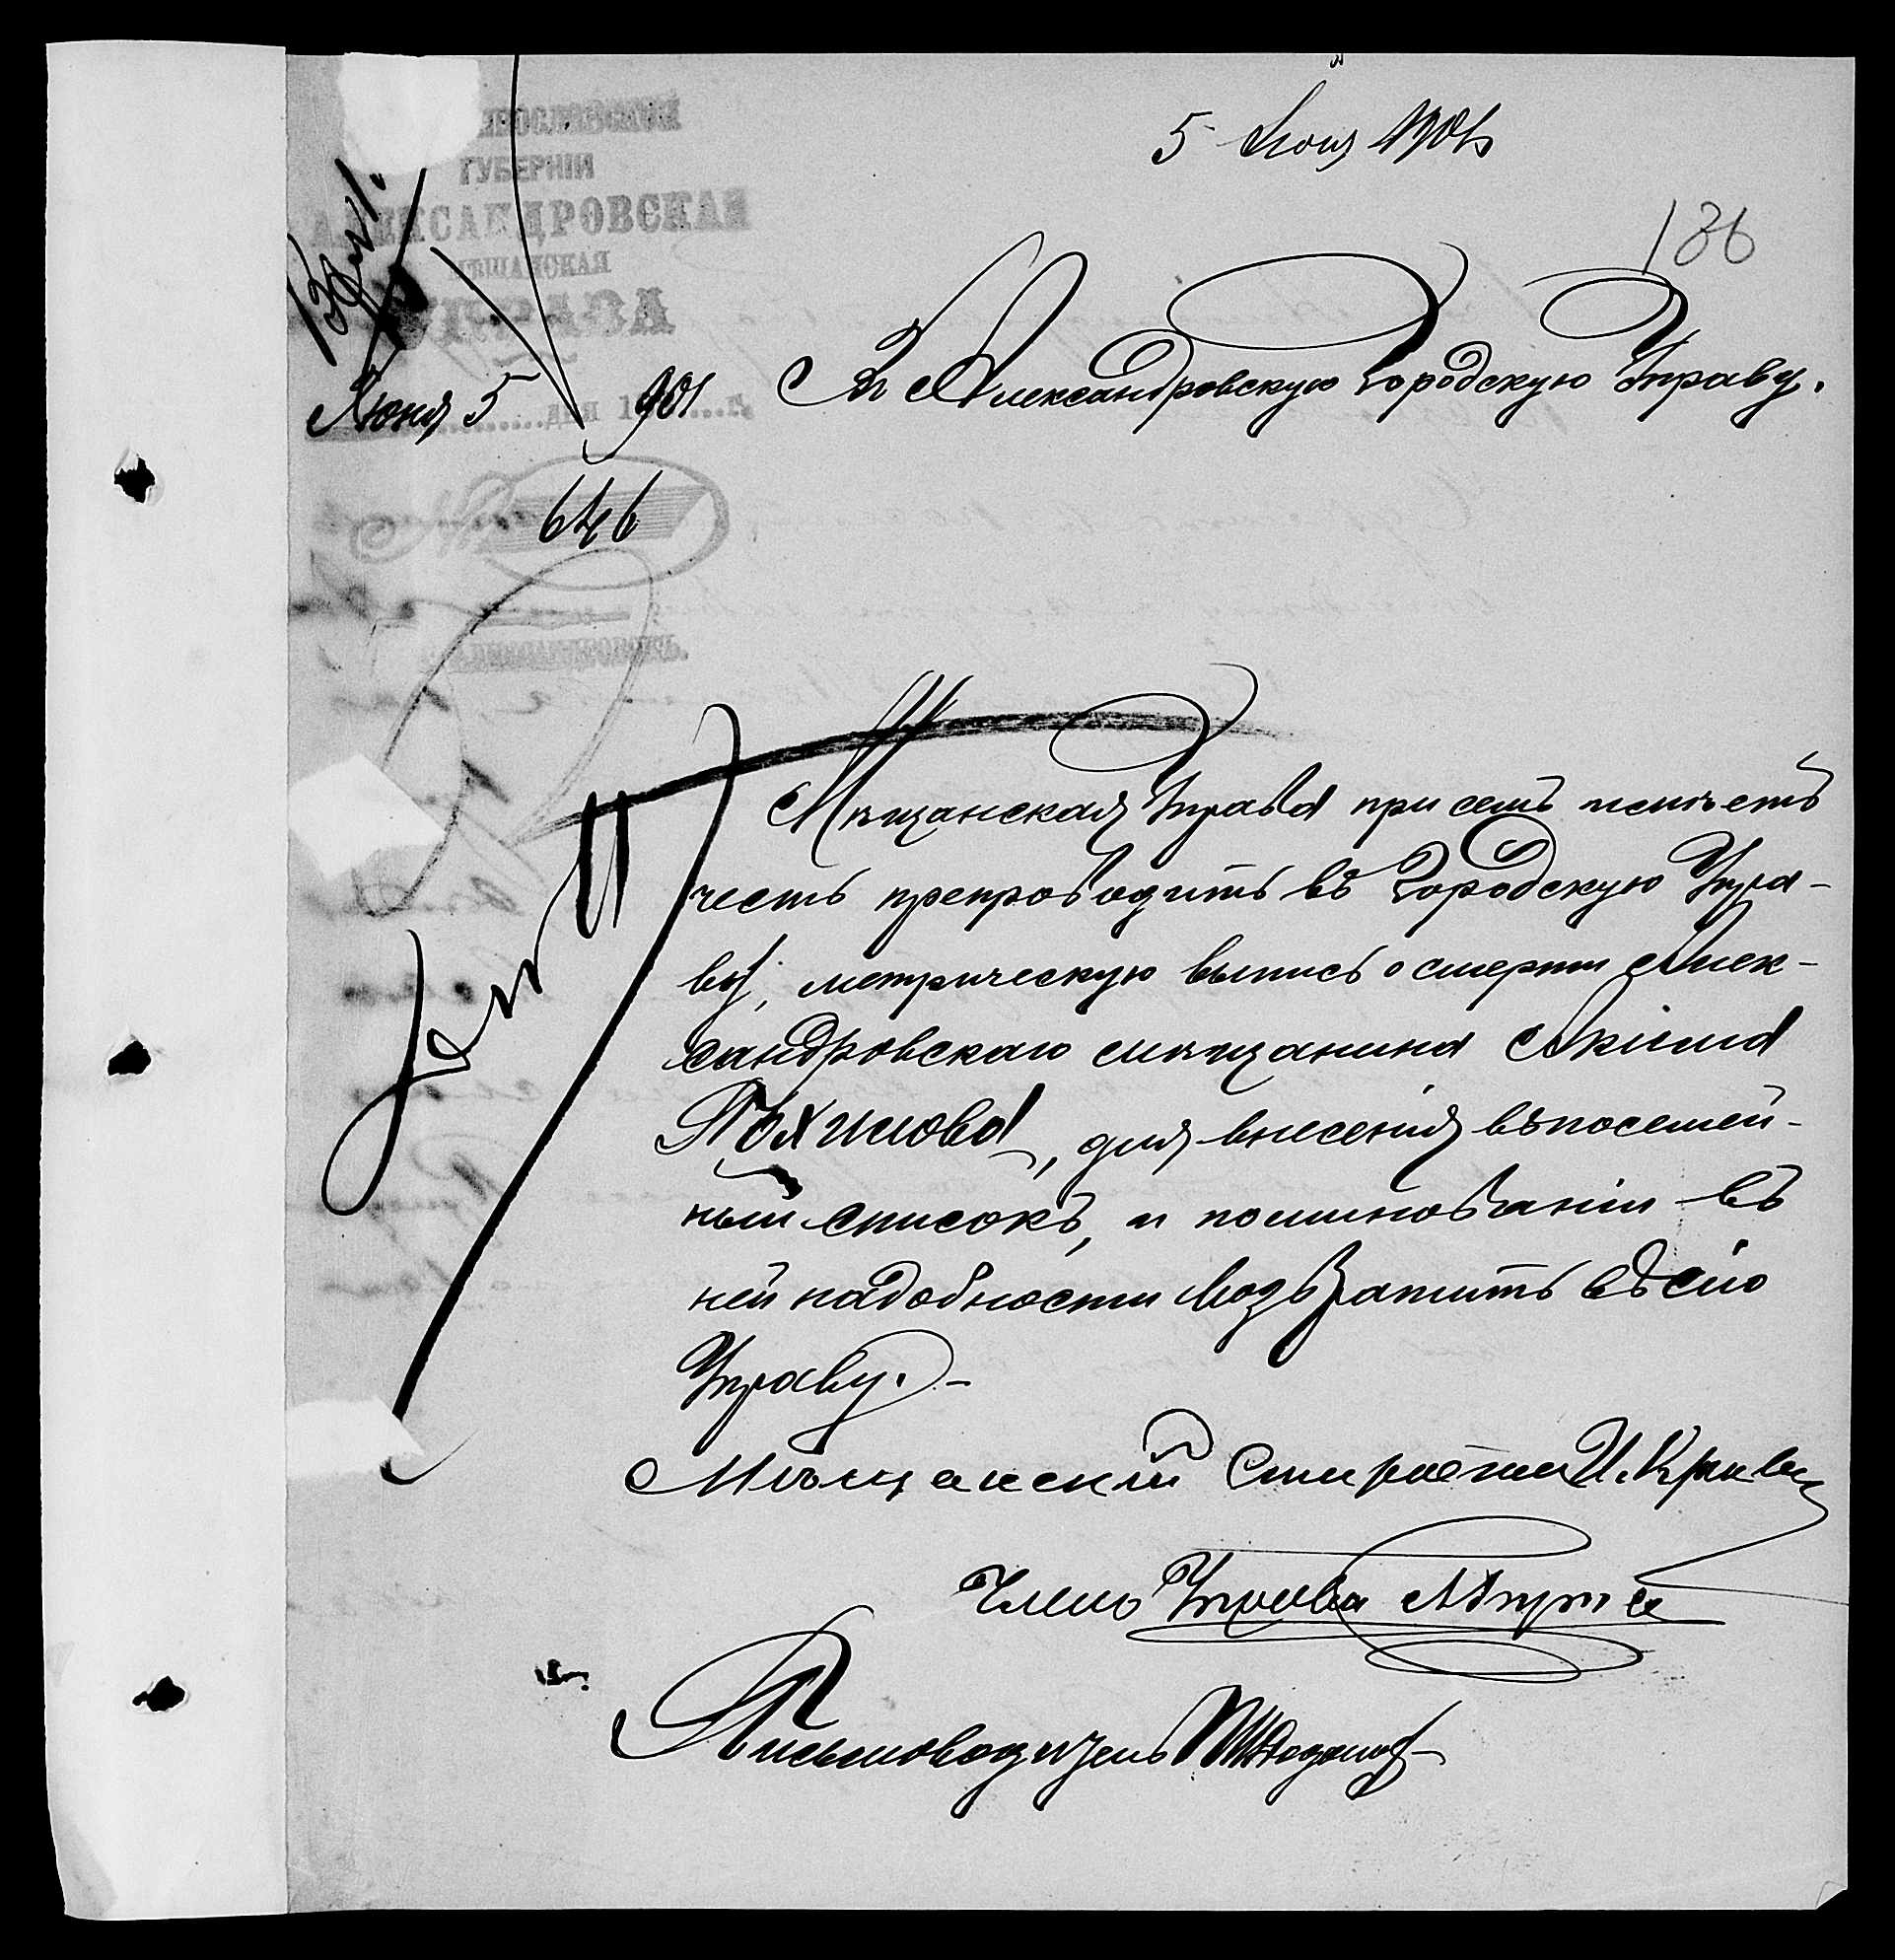 5 Июня 1901
136
ГУБЕРНІИ
АЛЕКСАНДРОВСКАЯ
МѢЩАНСКАЯ
УПРАВА
Июня 5 дня 1901 г.
№ 646
АЛЕКСАНДРОВСКЪ.
Въ Александровскую Городскую Управу.
Мѣщанская Управа при семъ имѣетъ
честь препроводить въ Городскую Упра-
ву, метрическую выпись о смерти Алек-
сандровскаго мѣщанина Акима
Пахимова, для внесенія въ посемей-
ный списокъ, и поминованіи въ
ней надобности возвратить въ сію
Управу.-
Мѣщанскій Староста И. Кривец
Членъ Управы
Письмоводитель